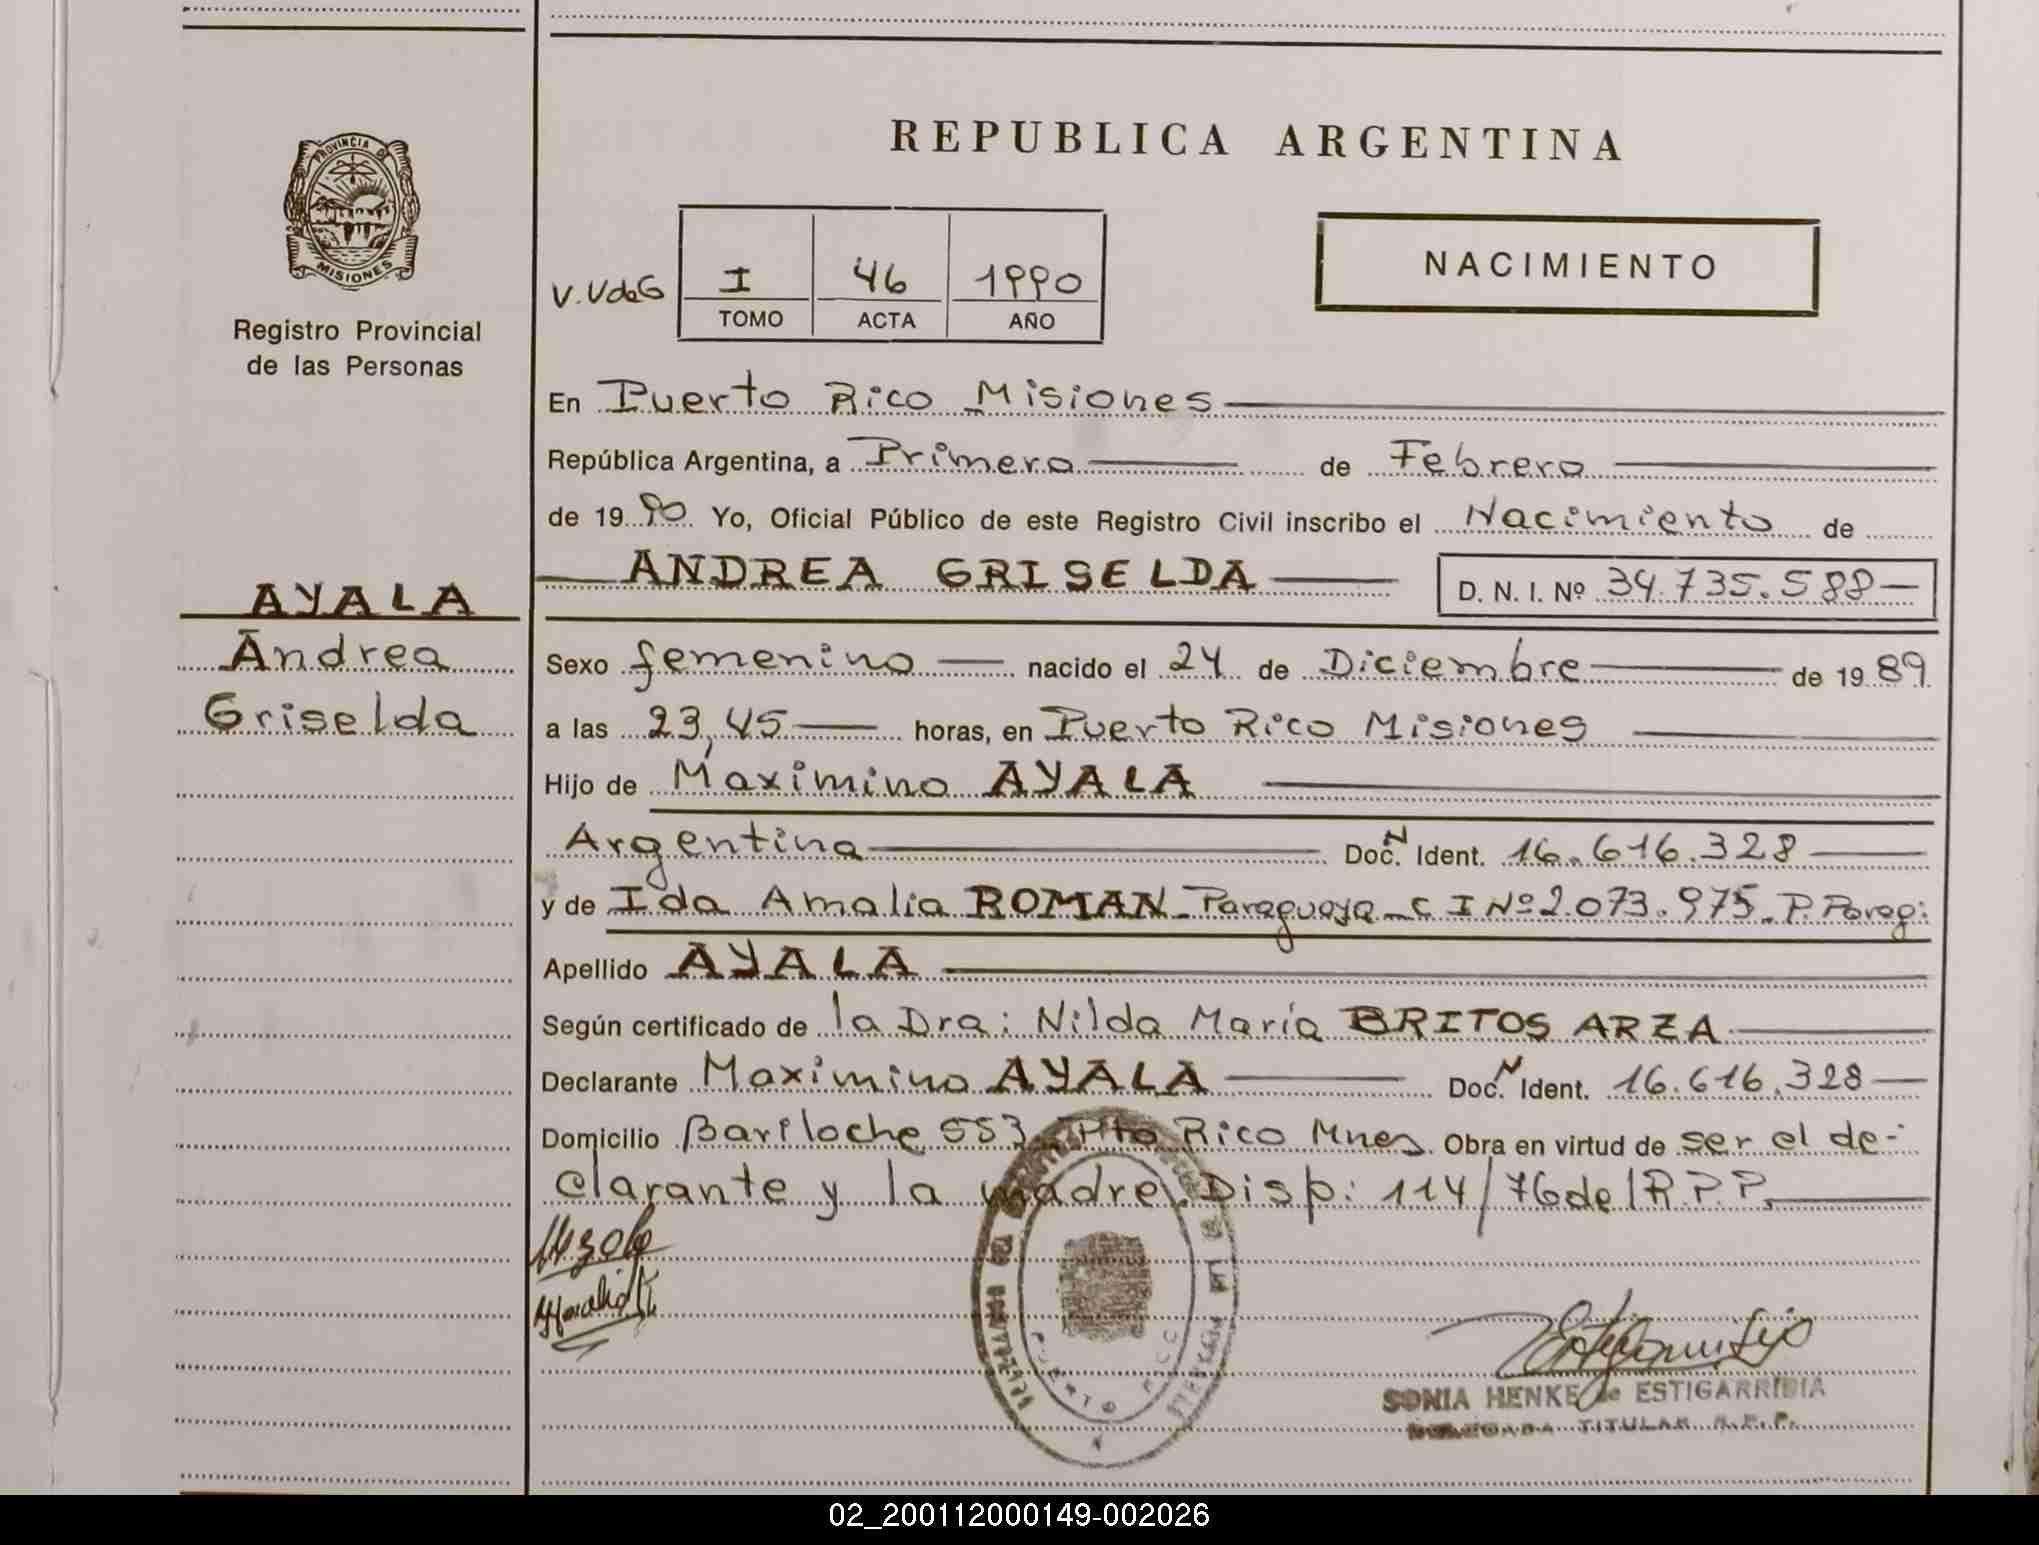 REPUBLICA ARGENTINA
PROVINCIA DE
MISIONES
Registro Provincial
de las Personas
V.VdeG
I 46 1990
TOMO ACTA AÑO
NACIMIENTO
En Puerto Rico Misiones
República Argentina, a Primero de Febrero
de 19 90 Yo, Oficial Público de este Registro Civil inscribo el Nacimiento de
ANDREA GRISELDA D. N. I. Nº 34.735.588
AYALA
Andrea
Griselda
Sexo femenino nacido el 24 de Diciembre de 19 89
a las 23,45 horas, en Puerto Rico Misiones
Hijo de Maximino AYALA
Argentina Doc. N Ident. 16.616.328
y de Ida Amalia ROMAN Paraguaya C I Nº 2.073.975 P. Parag:
Apellido AYALA
Según certificado de la Dra: Nilda María BRITOS ARZA
Declarante Maximino AYALA Doc. N Ident. 16.616.328
Domicilio Bariloche 553 Pto Rico Mnes Obra en virtud de ser el de-
clarante y la madre. Disp: 114/76 del R.P.P.
PUERTO RICO
SONIA HENKE de ESTIGARRIBIA
DELEGADA TITULAR R.P.P.
02_200112000149-002026